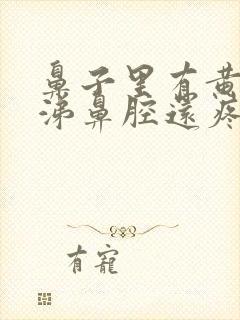 鼻子里有黄
涕鼻腔还疼
有宠